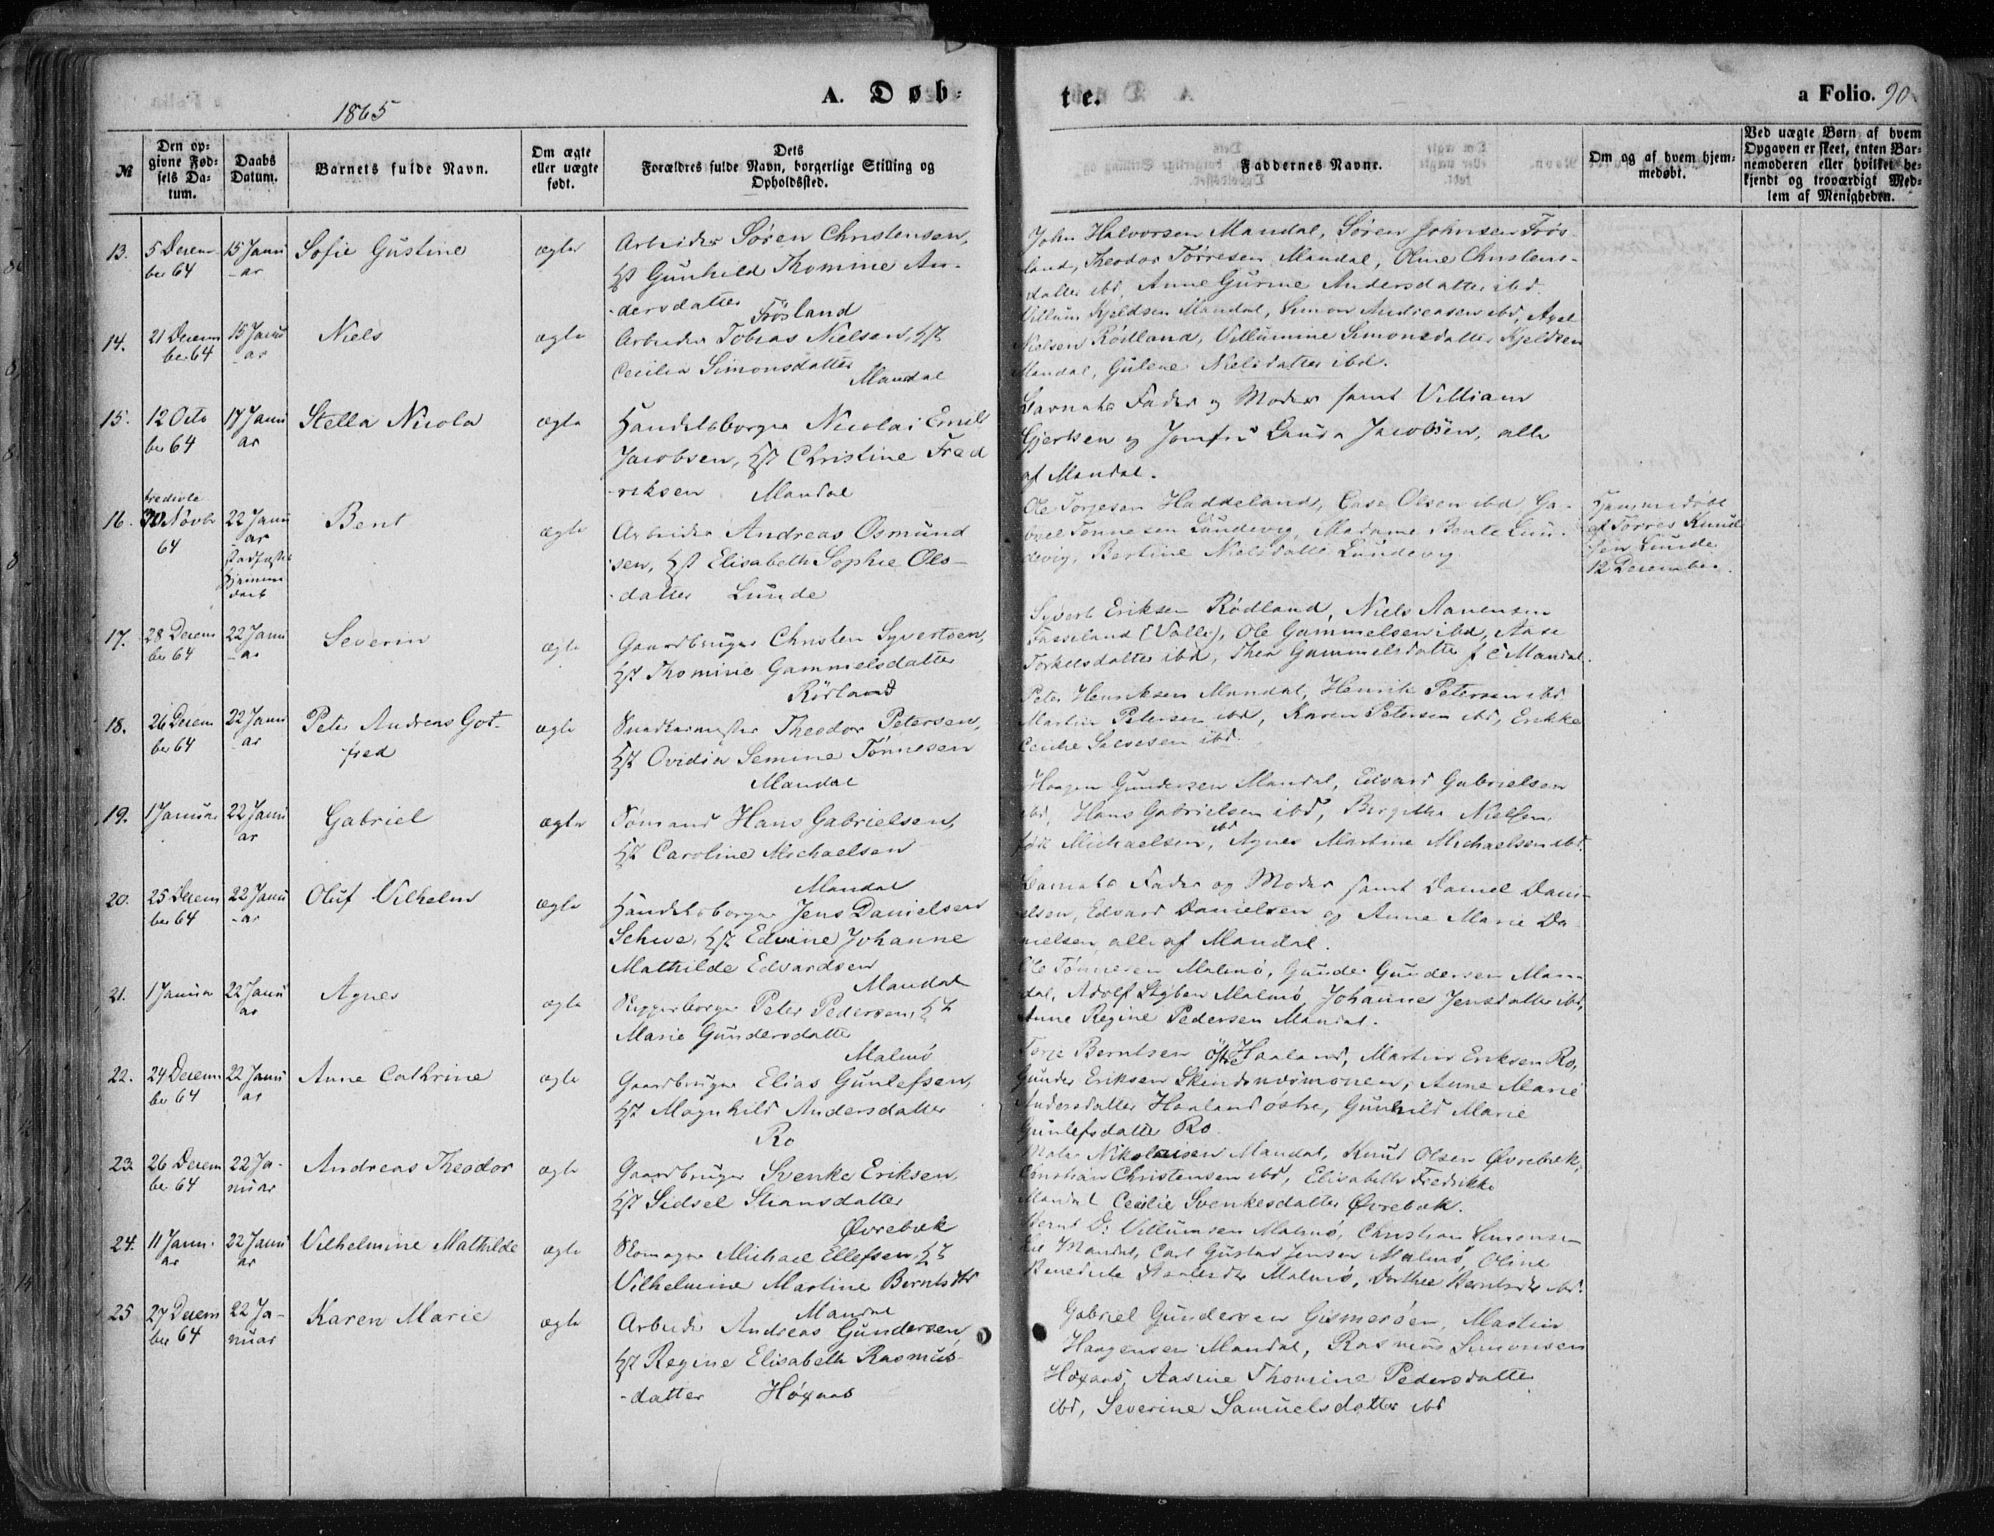 1865
A. Døb-
te.
a Folio. 90
№
Den op-
givne Fød-
sels Da-
tum.
Daabs
Datum.
Barnets fulde Navn.
Om ægte
eller uægte
født.
Dets
Forældres fulde Navn, borgerlige Stilling og
Opholdssted.
Faddernes Navne.
Om og af hvem hjem-
medøbt.
Ved uægte Børn af hvem
Opgaven er skeet, enten Bar-
nemoderen eller hvilket be-
kjendt og troværdigt Med-
lem af Menigheden.
13.
5 Decem
ber 64
15 Janu
-ar
Sofie Gustine
ægte
Arbeider Sören Christensen,
Hst Gunhild Thomine An-
-dersdatter
Frösland
John Halvorsen Mandal, Sören Johnsen Frös-
land, Theodor Törresen Mandal, Oline Christens-
datter ibd, Anne Gurine Andersdatter ibd.
14.
21 Decem
ber 64
15 Janu
-ar
Niels
ægte
Arbeider Tobias Nielsen, Hst
Cecilia Simonsdatter
Mandal
Villum Kjeldsen Mandal, Simon Andreasen ibd, Axel
Nielsen Rödland, Villumine Simonsdatter Kjeldsen
Mandal, Gulene Nielsdatter ibd.
15.
12 Octo
ber 64
17 Janu
ar
Stella Nicola
ægte
Handelsborger Nicolai Emil
Jacobsen, Hst Christine Fred
-riksen Mandal
Barnets Fader og Moder samt Villiam
Gjertsen og Jomfru Laura Jacobsen, alle
af Mandal.
16.
30 Novbr
64
22 Janu
ar
Bent
ægte
Arbeider Andreas Osmund
sen, Hst Elisabeth Sophie Ols-
-datter Lunde
Ole Torjesen Haddeland, Case Olsen ibd Ga-
briel Tönnesen Lundevig, Madame Bente Lun-
devig, Bertine Nielsdatter Lundevig
Hjemmedöbt
af Torres Knud
sen Lunde
12 December.
17.
28 Decem
ber 64
22 Janu
-ar
Severin
ægte
Gaardbruger Christen Syvertsen,
Hst Thomine Gammelsdatter
Rörland
Sivert Eriksen Rödland, Niels Aanensen
Fasseland (Valle), Ole Gammelsen ibd, Aase
Torkelsdatter ibd, Thea Gammelsdatter Mandal.
18.
26 Decem
ber 64
22 Janu
-ar
Peter Andreas Got-
fred
ægte
Snedkermester Theodor Petersen,
Hst Ovidia Semine Tönnesen
Mandal
Peter Henriksen Mandal, Henrik Petersen ibd
Martin Petersen ibd, Karen Petersen ibd, Erikke
Cecilie Salvesen ibd.
19.
1 Januar
22 Janu
ar
Gabriel
ægte
Sömand Hans Gabrielsen,
Hst Caroline Michaelsen
Mandal
Haagen Gundersen Mandal, Edvard Gabrielsen
ibd, Hans Gabrielsen ibd, Bergithe Nielsen,
född Michaelsen, ibd Agnes Martine Michaelsen ibd.
20.
25 Decem
ber 64
22 Janu
-ar
Oluf Vilhelm
ægte
Handelsborger Jens Danielsen
Schive, Hst Edvine Johanne
Mathilde Edvardsen
Mandal
Barnets Fader og Moder samt Daniel Dani-
elsen, Edvard Danielsen og Anne Marie Da-
nielsen alle af Mandal.
21.
1 Januar
22 Janu
ar
Agnes
ægte
Skipperborger Peter Pedersen, Hst
Marie Gundersdatter
Malmö
Ole Tönnesen Malmö, Gunder Gundersen Man-
dal, Adolf Styben Malmö, Johanne Jensdatter ibd,
Anne Regine Pedersen Mandal.
22.
24 Decem
ber 64
22 Janu
ar
Anne Cathrine
ægte
Gaardbruger Elias Gunlefsen,
Hst Magnhild Andersdatter
Ro
Torje Berntsen östre Haaland, Martin Eriksen Ro,
Gunder Eriksen Skindsnæsmonen, Anne Marie
Andersdatter Haaland östre, Gunhild Marie
Gunlefsdatter Ro.
23.
26 Decem
ber 64
22 Ja-
nuar
Andreas Theodor
ægte
Gaardbruger Svenke Eriksen,
Hst Sidsel Steansdatter
Øvrebæk
Nikolaisen Mandal, Knud Olsen Øvrebæk,
Christian Christensen ibd, Elisabeth Fredrikke
Mandal Cecilie Svenkesdatter Øvrebæk.
24.
11 Janu-
ar
22 Janu
ar
Vilhelmine Mathilde
ægte
Skomager Michael Ellefsen, Hst
Vilhelmine Martine Berntsdtr
Mandal
Bernt O. Villumsen Malmö, Christian Simonsen
Mandal, Carl Gustav Jensen Malmö, Oline
Benedicte Malmö, Dorthea Berntsdtr ibd.
25
27 Decem
ber 64
22 Ja-
nuar
Karen Marie
ægte
Arbeider Andreas Gundersen,
Hst Regine Elisabeth Rasmus-
-datter Höxaas
Gabriel Gundersen Gismeröen, Martin
Haagensen Mandal, Rasmus Simonsen
Höxaas, Aasine Thomine Pedersdatter
ibd, Severine Samuelsdatter ibd